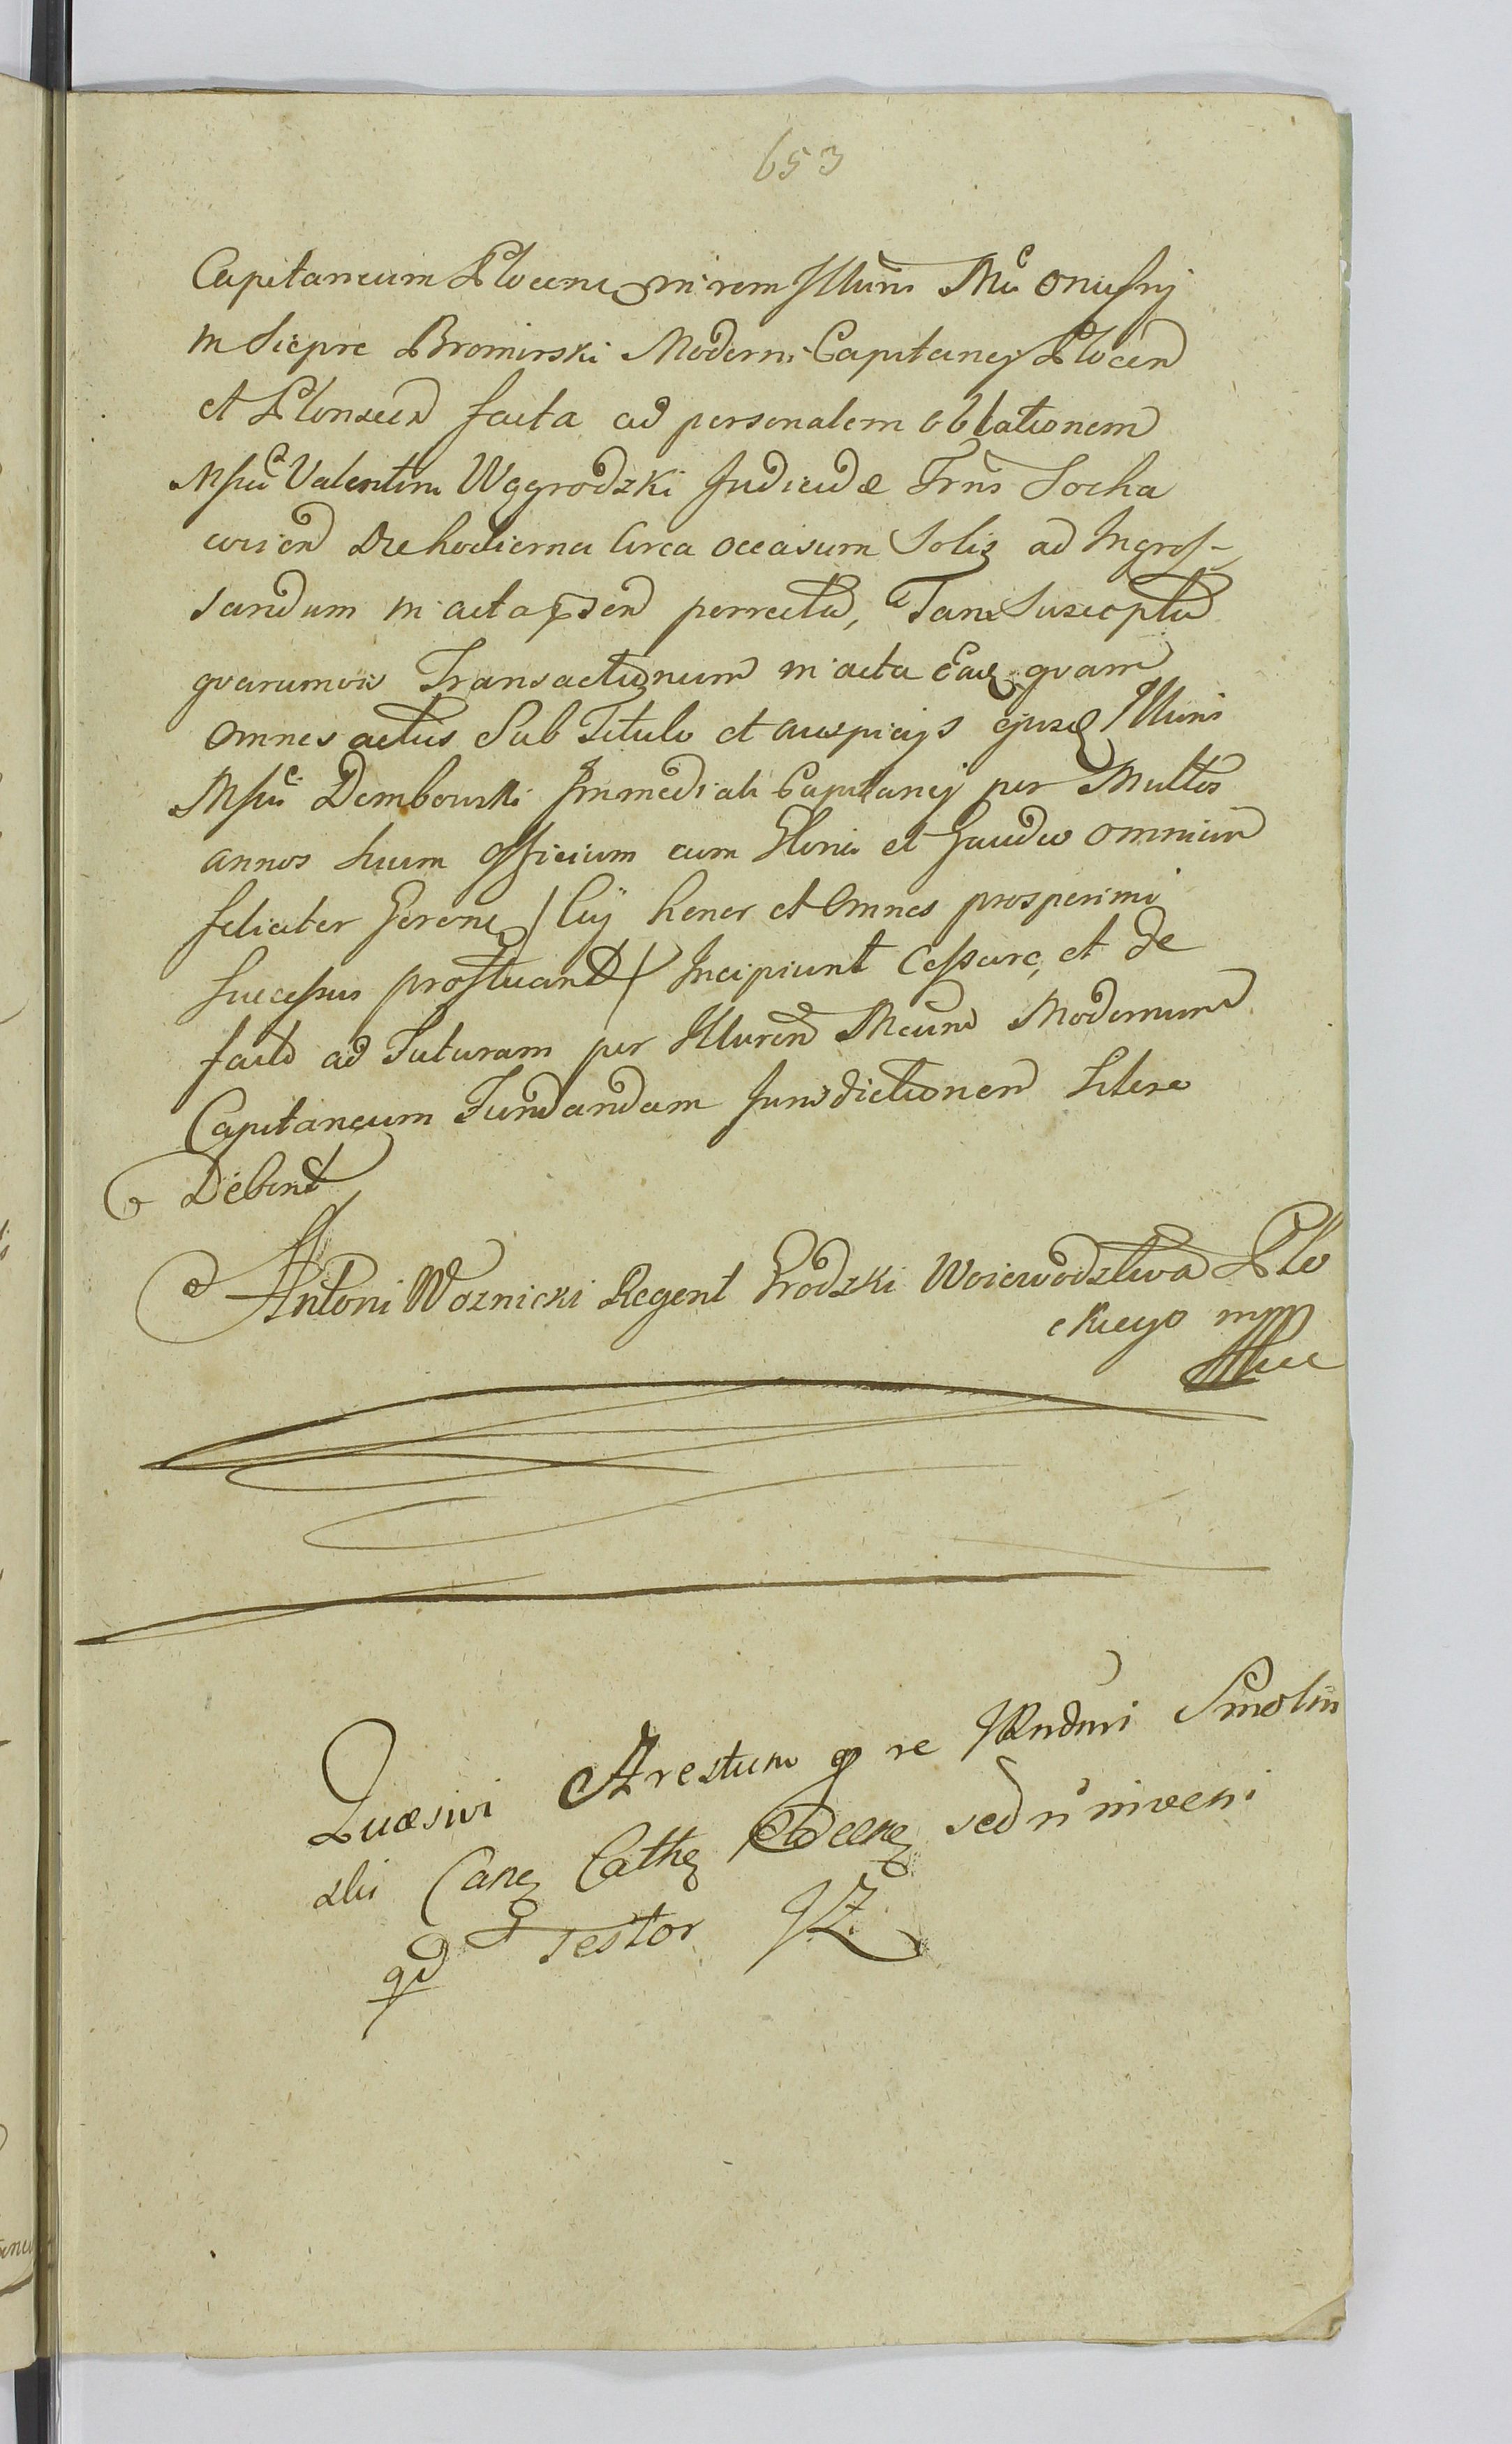 653
Capitaneum Plocene in rem Illuris Mci Onufrij
in Siepre Bromirski Moderni Capitanej Plocen
et Plonscen facta ad personalem oblationem
Msci Valentini Węgrodzki Judicii Trnis Socha
curien Die hodierna Circa occasum Solis ad Ingros-
sandum in acta psen porrecta, Tam Susceptu
quarumvis Transactionum in acta Eaq quam
omnes actus Sub Titulo et auspicijs ejusd Illuris
Msci Dembowski Immediati Capitanej per Multos
annos huum officium cum Gloria et Gaudio omnium
feliciter Gerene / Cuj honor et Omnes prosperimi
successus prostuant / Incipiunt Cessare, et de
facto ad Futuram per Illurem Mcum Modernum
Capitaneum Fundandam Jurisdictionem Silere
Debent
Antoni Woznicki Regent Grodzki Woiewodztwa Plo
ckiego mpp
Quaesivi Arestum re Rndmi Smolin
ski Cane Cathe Plocene sed n inveni
qd Testor JZ.